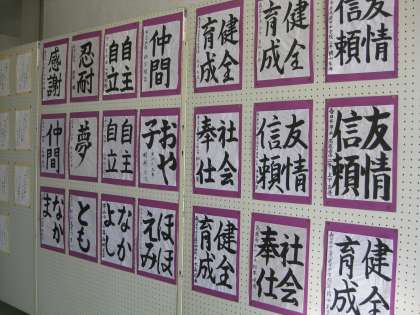 感謝
忍耐
自主
自立
仲間
健全
育成
健全
育成
友情
信頼
仲間
夢
自主
自立
おや
子
社会
奉仕
友情
信頼
友情
信頼
なか
ま
とも
なか
よし
ほほ
えみ
健全
育成
社会
奉仕
健全
育成